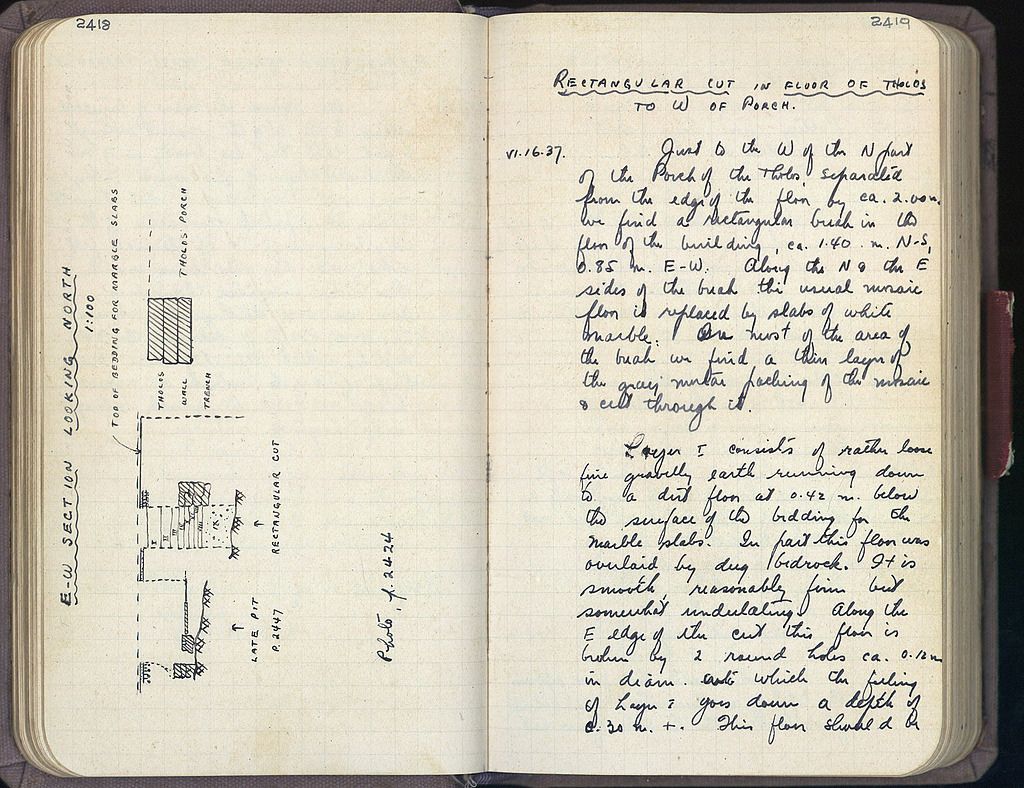 2418
E-W SECTION LOOKING NORTH
1:100
TOP OF BEDDING FOR MARBLE SLABS
THOLOS PORCH
THOLOS
WALL
TRENCH
RECTANGULAR CUT
LATE PIT
P. 2447
Photo, p. 2424
2419
RECTANGULAR CUT IN FLOOR OF THOLOS
TO W OF PORCH.
VI.16.37.
Just to the W of the N part
of the Porch of the Tholos, separated
from the edge of the floor by ca. 2.00 m.
we find a rectangular break in the
floor of the building, ca. 1.40 m. N-S,
0.85 m. E-W. Along the N & the E
sides of the break the usual mosaic
floor is replaced by slabs of white
marble. Over most of the area of
the break we find a thin layer of
the gray mortar packing of the mosaic
& cut through it.
Layer I consists of rather loose
fine gravelly earth running down
to a dirt floor at 0.42 m. below
the surface of the bedding for the
marble slabs. In part this floor was
overlaid by dug bedrock. It is
smooth, reasonably firm but
somewhat undulating. Along the
E edge of the cut this floor is
broken by 2 round holes ca. 0.12 m
in diam. into which the filling
of Layer I goes down a depth of
0.30 m. +. This floor should be